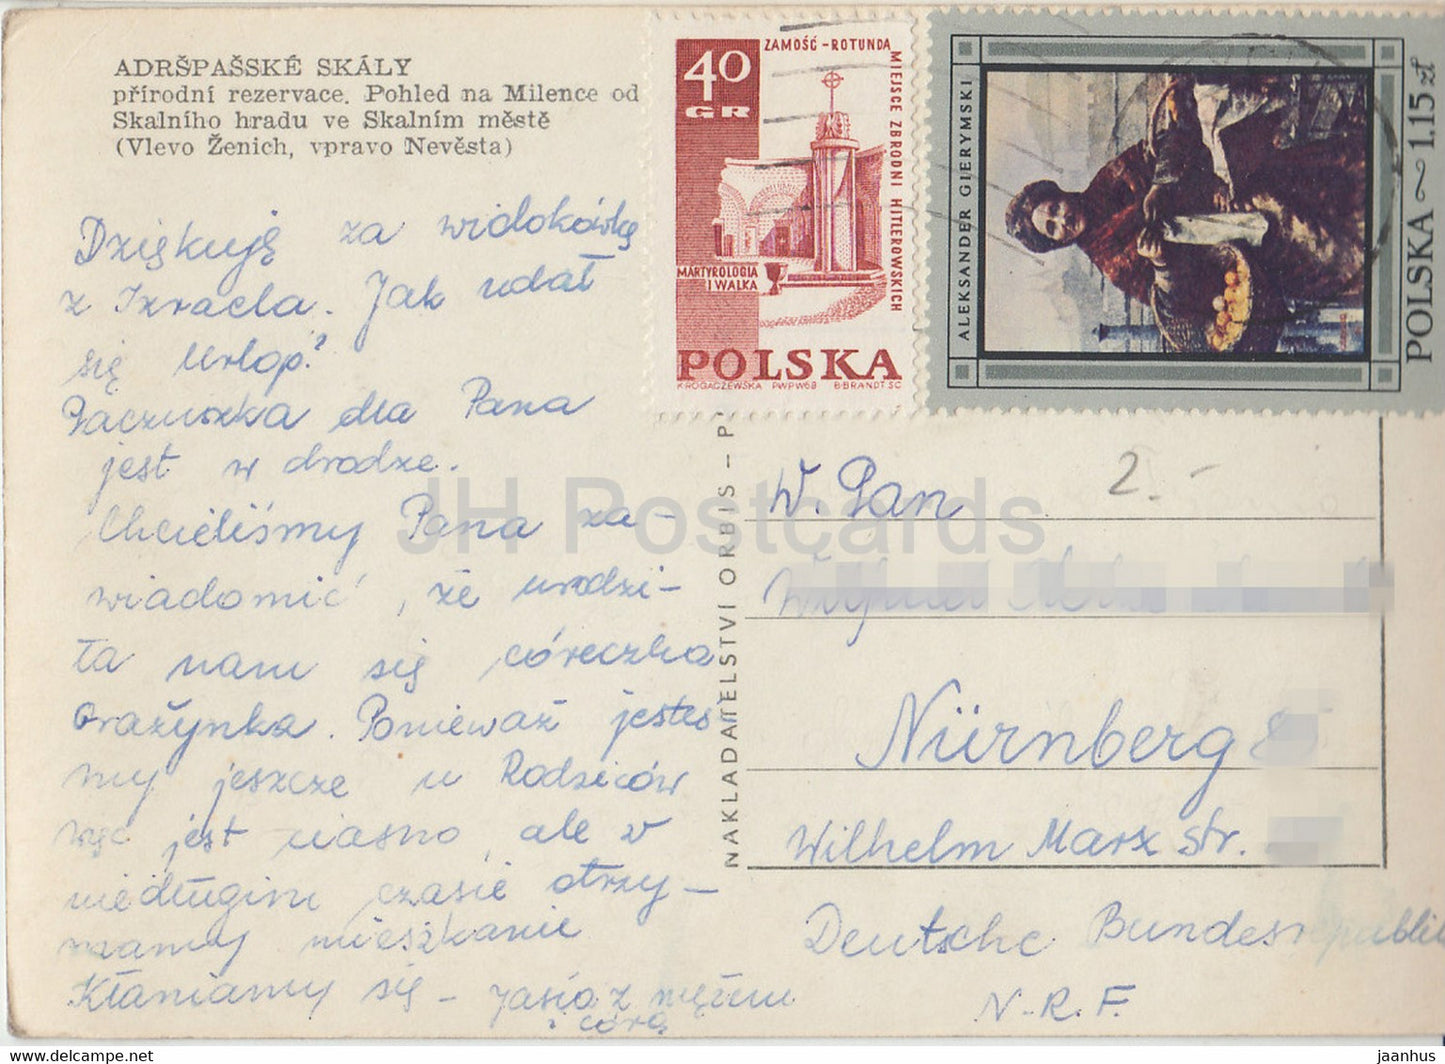 ADRŠPAŠSKÉ SKÁLY
přírodní rezervace. Pohled na Milence od
Skalního hradu ve Skalním městě
(Vlevo Ženich, vpravo Nevěsta)
Dziękuję za widokówkę
z Izraela. Jak udał
się urlop?
Paczuszka dla Pana
jest w drodze.
Chcieliśmy Pana za-
wiadomić, że urodzi-
ła nam się córeczka
Grażynka. Ponieważ jesteś
my jeszcze u Rodziców
więc jest ciasno, ale w
niedługim czasie otrzy-
mamy mieszkanie
Kłaniamy się - Jasia z mężem
i córą
40
GR
ZAMOŚĆ - ROTUNDA
MIEJSCE ZBRODNI HITLEROWSKICH
MARTYROLOGIA
I WALKA
POLSKA
K·ROGACZEWSKA PWPW68 B·BRANDT SC
ALEKSANDER GIERYMSKI
POLSKA ~ 1.15 zł
NAKLADATELSTVÍ ORBIS - P
2.-
W. Pan
Nürnberg
Wilhelm Marx str.
Deutsche Bundesrepublik
N.R.F.
JH Postcards
https://www.jhpostcards.com
jaanhus